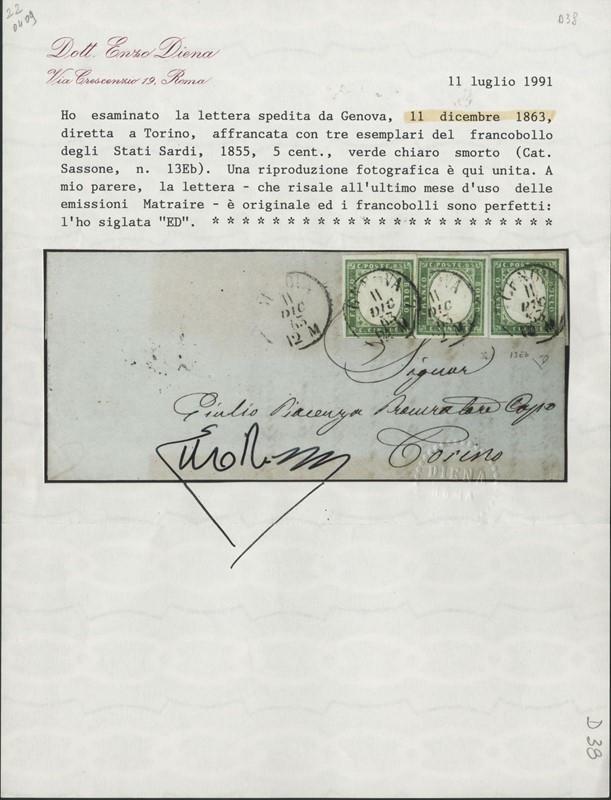 22
0409
D38
Dott. Enzo Diena
Via Crescenzio 19, Roma
11 luglio 1991
Ho esaminato la lettera spedita da Genova, 11 dicembre 1863,
diretta a Torino, affrancata con tre esemplari del francobollo
degli Stati Sardi, 1855, 5 cent., verde chiaro smorto (Cat.
Sassone, n. 13Eb). Una riproduzione fotografica è qui unita. A
mio parere, la lettera - che risale all'ultimo mese d'uso delle
emissioni Matraire - è originale ed i francobolli sono perfetti:
l'ho siglata "ED". * * * * * * * * * * * * * * * * * * * * * * *
C. POSTE
C. POSTE
C. POSTE
GENOVA
11
DIC
63
12 M
GENOVA
11
DIC
63
GENOVA
11
DIC
63
12 M
GENOVA
11
DIC
63
12 M
13Eb
Signor
Giulio Piacenza Procuratore Capo
Torino
DIENA
ROMA
D 38